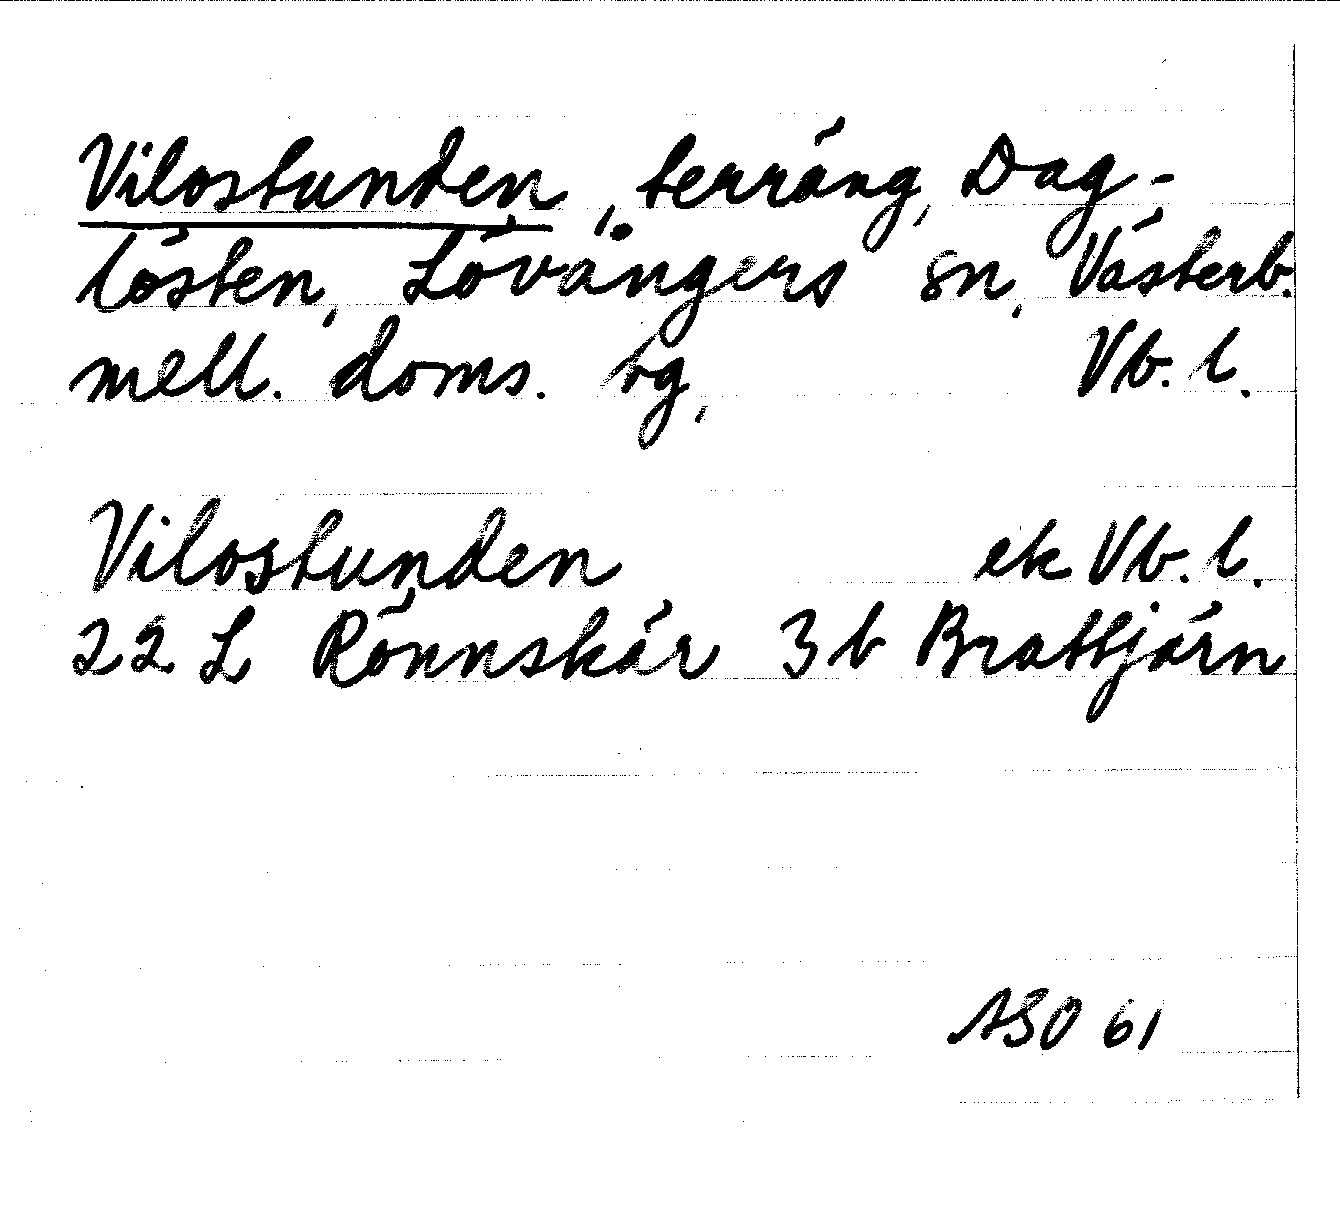 Vilostunden, terräng, Dag-
lösten, Lövångers sn, Västerb.
mell. doms. tg, Vb. l.
Vilostunden ek Vb. l.
22 L Rönnskär 3 b Brattjärn
ASO 61